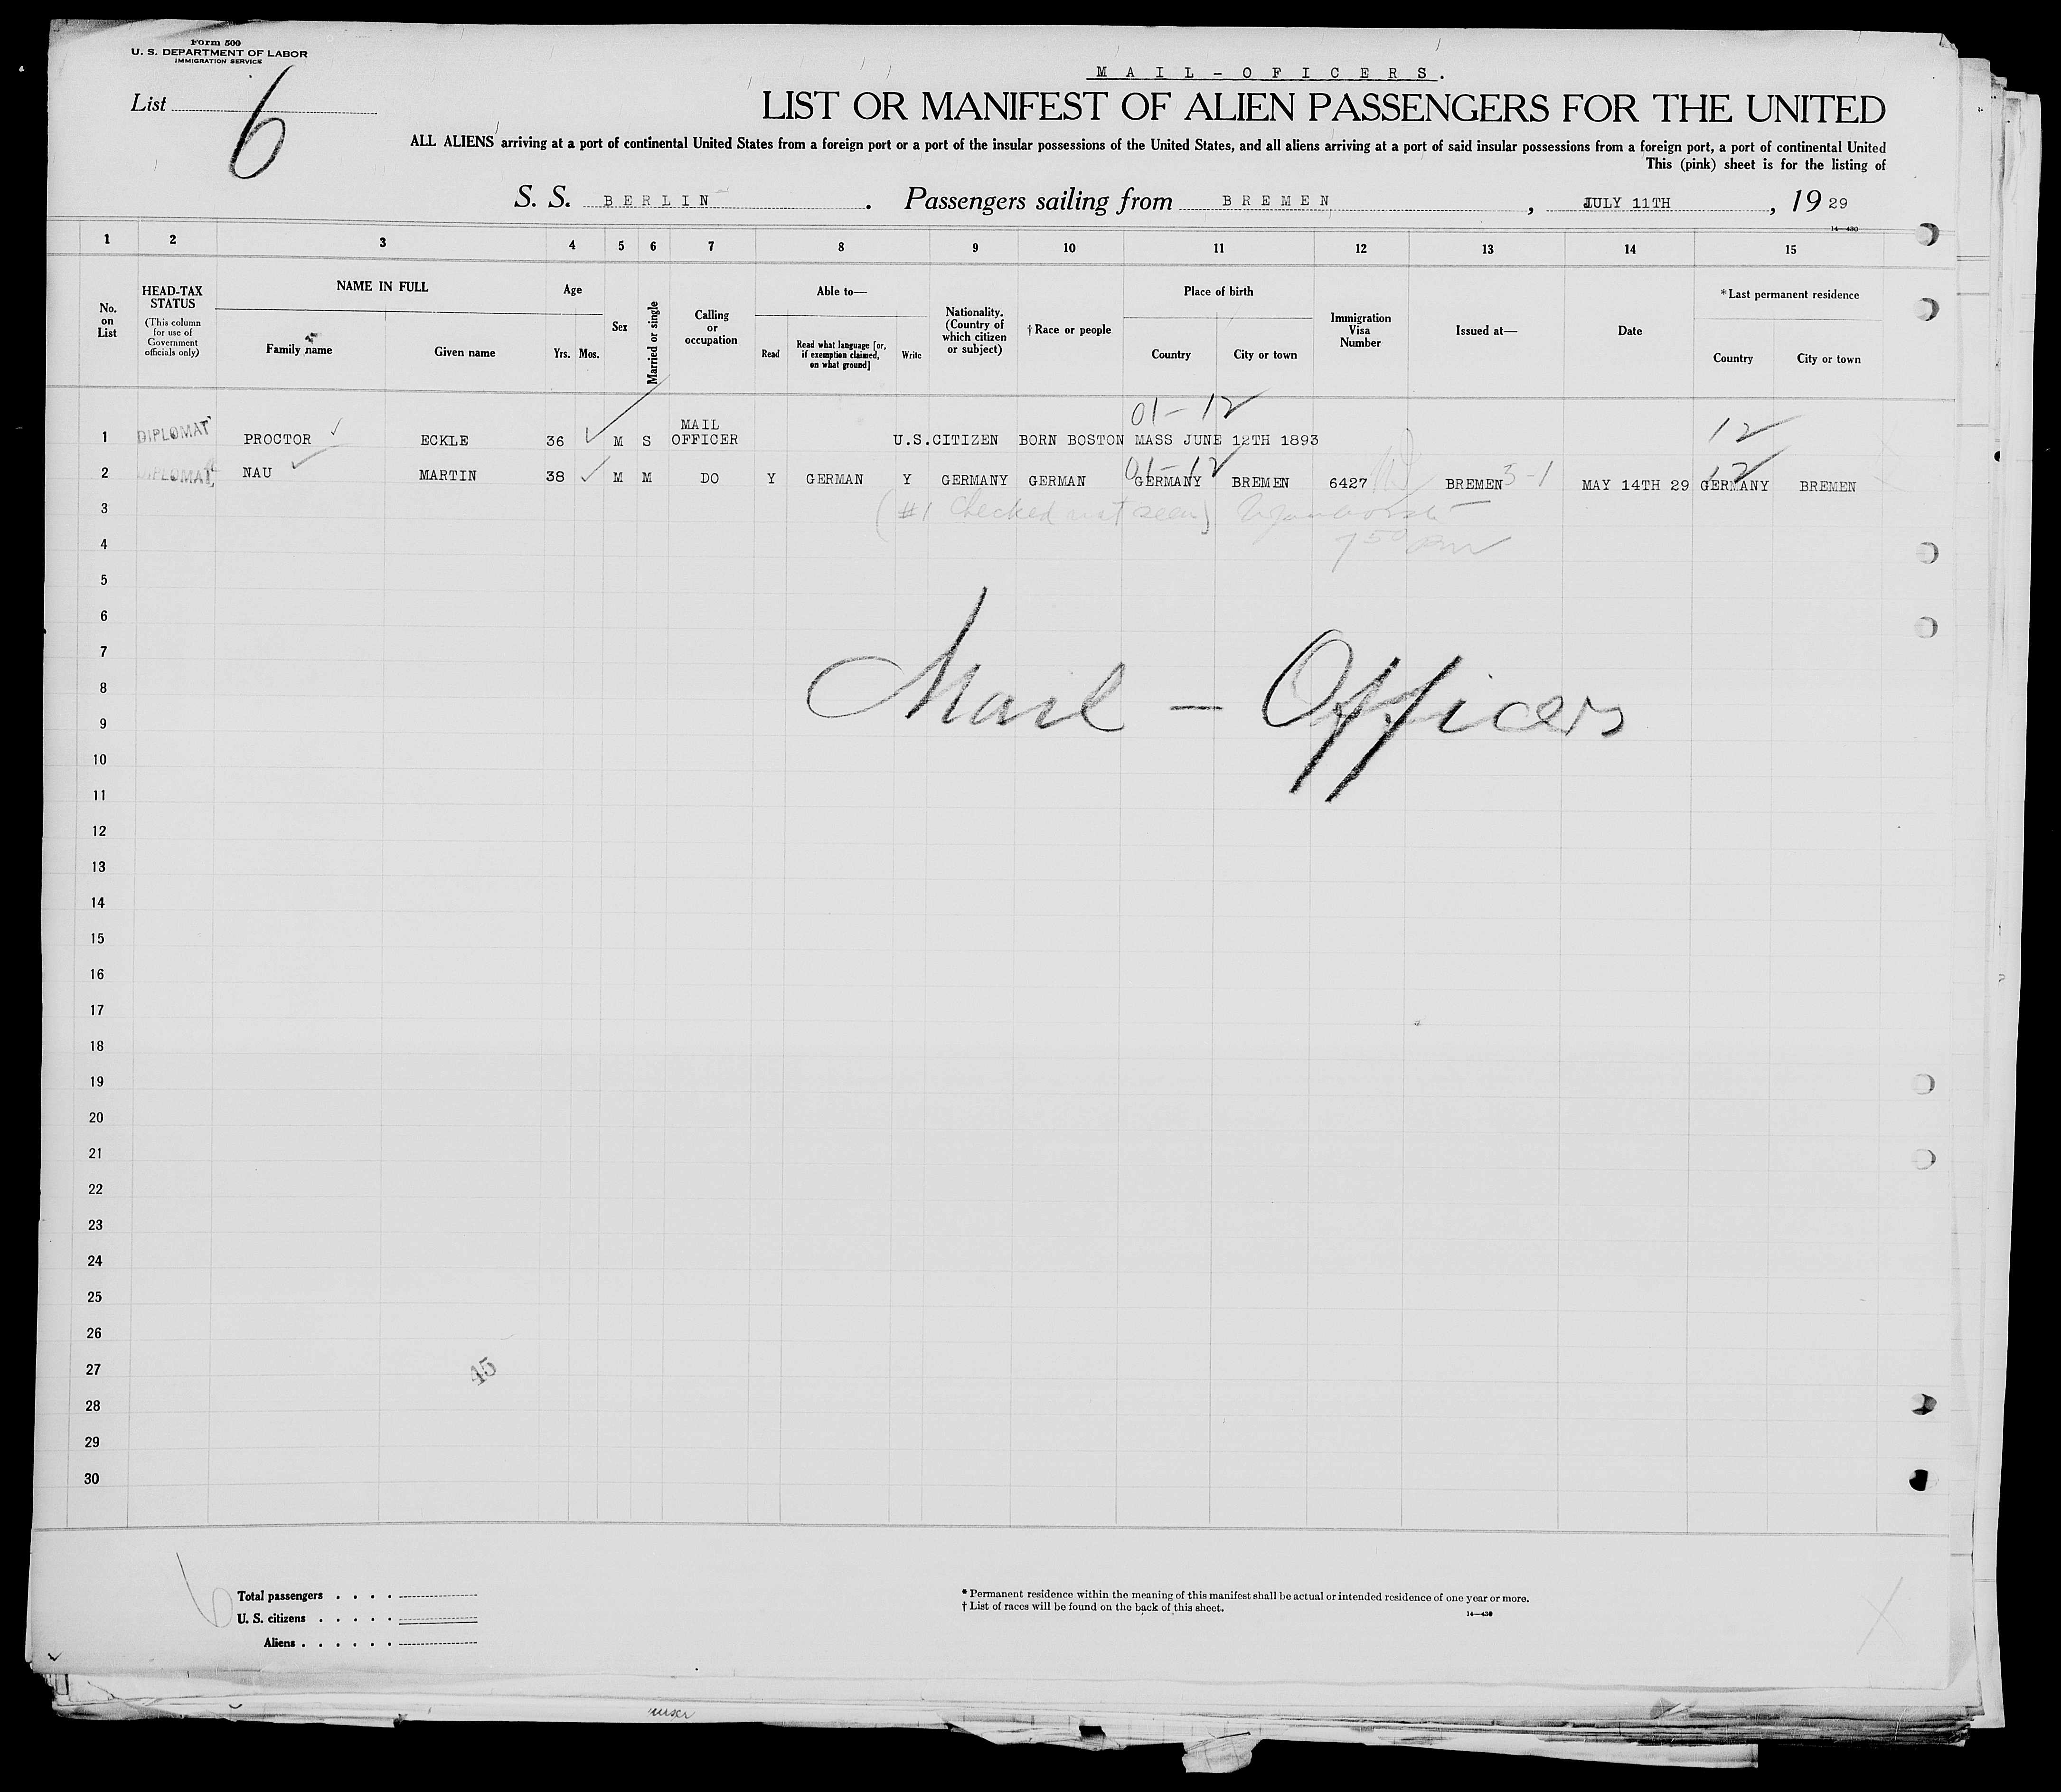 Form 500
U. S. DEPARTMENT OF LABOR
IMMIGRATION SERVICE
MAIL-OFFICERS.
List 6
LIST OR MANIFEST OF ALIEN PASSENGERS FOR THE UNITED
ALL ALIENS arriving at a port of continental United States from a foreign port or a port of the insular possessions of the United States, and all aliens arriving at a port of said insular possessions from a foreign port, a port of continental United
This (pink) sheet is for the listing of
S. S. BERLIN. Passengers sailing from BREMEN, JULY 11TH, 19 29
14—430
1 2 3 4 5 6 7 8 9 10 11 12 13 14 15
No. on List
HEAD-TAX STATUS
(This column for use of Government officials only)
NAME IN FULL
Family name Given name
Age
Yrs. Mos.
Sex
Married or single
Calling or occupation
Able to—
Read
Read what language [or, if exemption claimed, on what ground]
Write
Nationality. (Country of which citizen or subject)
†Race or people
Place of birth
Country City or town
Immigration Visa Number
Issued at—
Date
*Last permanent residence
Country City or town
01-12 12
1 DIPLOMAT PROCTOR ECKLE 36 M S MAIL OFFICER U.S.CITIZEN BORN BOSTON MASS JUNE 12TH 1893
01-12 12
2 DIPLOMAT NAU MARTIN 38 M M DO Y GERMAN Y GERMANY GERMAN GERMANY BREMEN 6427 BREMEN 3-1 MAY 14TH 29 GERMANY BREMEN
3 (#1 Checked not seen)
4
5
6
7
8 Mail - Officers
9
10
11
12
13
14
15
16
17
18
19
20
21
22
23
24
25
26
27 45
28
29
30
Total passengers . . . .
U. S. citizens . . . . .
Aliens . . . . . .
* Permanent residence within the meaning of this manifest shall be actual or intended residence of one year or more.
† List of races will be found on the back of this sheet.
14—430